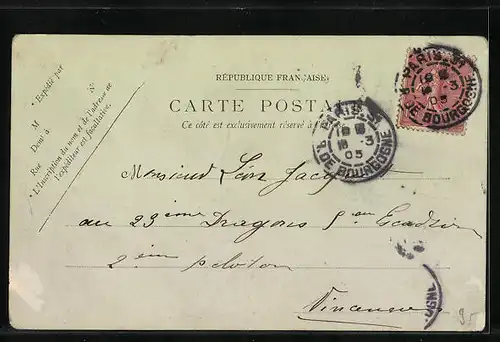 RÉPUBLIQUE FRANÇAISE
CARTE POSTALE
Ce côté est exclusivement réservé à
Expédié par
M N°
Demt à
Rue
* L'inscription du nom et de l'adresse de
l'expéditeur est facultative.
PARIS
18 - 3
03
R. DE BOURGOGNE
PARIS
18 - 3
03
R. DE BOURGOGNE
Monsieur
au 23ème Dragons 5 au Escadron
2ème peloton
Vincennes
OGNE
95